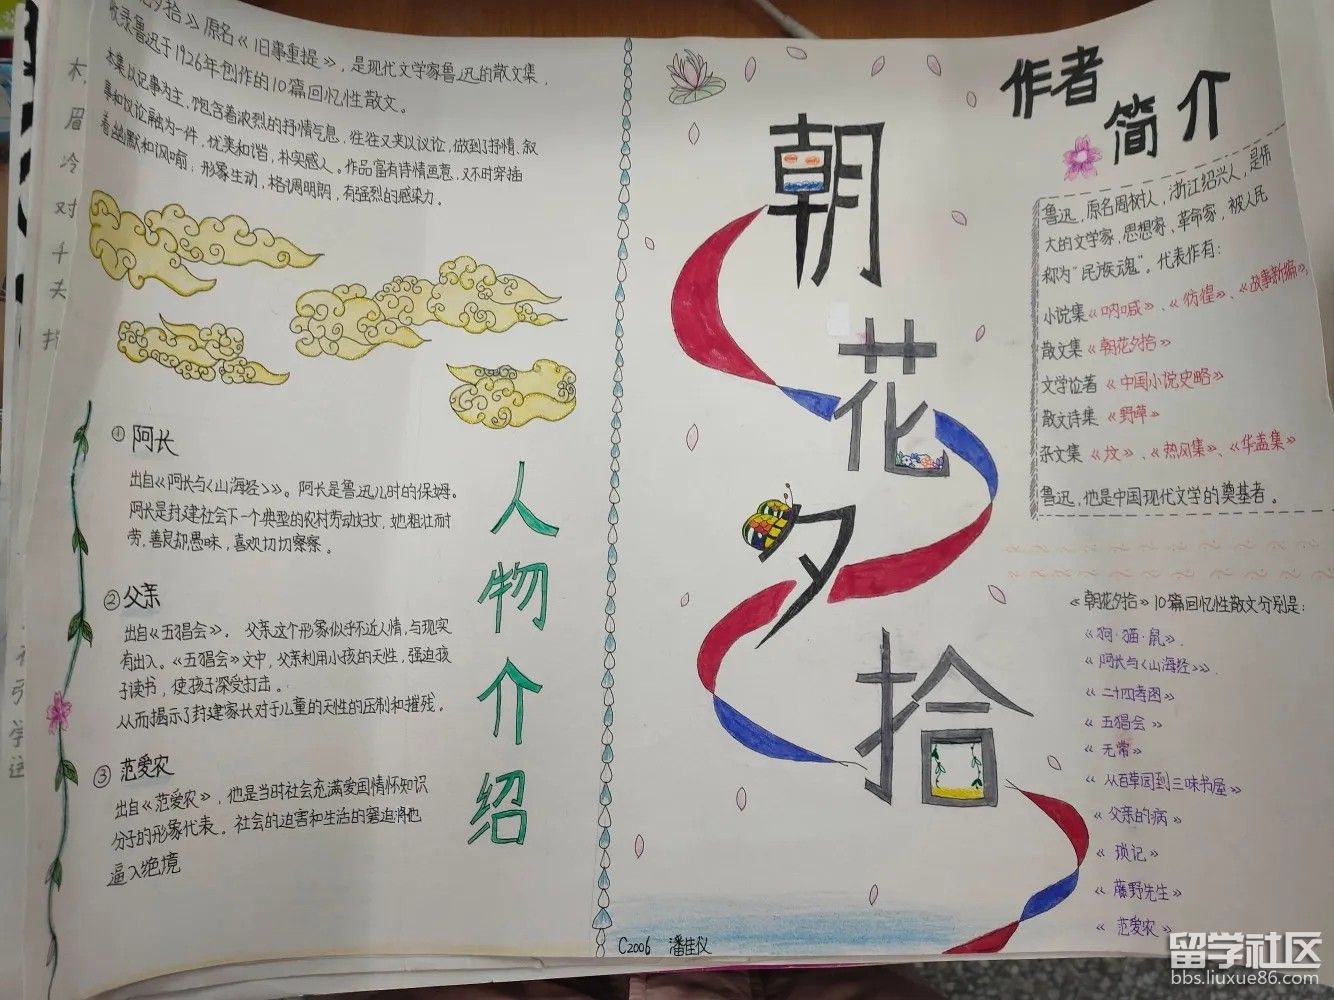 夕拾》原名《旧事重提》，是现代文学家鲁迅的散文集，
收录鲁迅于1926年创作的10篇回忆性散文。
本集以记事为主，饱含着浓烈的抒情气息，往往又夹以议论，做到了抒情、叙
事和议论融为一件，优美和谐，朴实感人。作品富有诗情画意，又不时穿插
着幽默和讽喻；形象生动，格调明朗，有强烈的感染力。
①阿长
出自《阿长与《山海经》》。阿长是鲁迅儿时的保姆。
阿长是封建社会下一个典型的农村劳动妇女，她粗壮而耐
劳，善良却愚昧，喜欢切切察察。
②父亲
出自《五猖会》，父亲这个形象似乎不近人情，与现实
有出入。《五猖会》文中，父亲利用小孩的天性，强迫孩
子读书，使孩子深受打击。
从而揭示了封建家长对于儿童的天性的压制和摧残。
③范爱农
出自《范爱农》，他是当时社会充满爱国情怀知识
分子的形象代表。社会的迫害和生活的窘迫将他
逼入绝境
人物介绍
朝花夕拾
C2006 潘佳仪
作者简介
鲁迅，原名周树人，浙江绍兴人，是伟
大的文学家，思想家、革命家，被人民
称为“民族魂”。代表作有：
小说集《呐喊》、《彷徨》、《故事新编》，
散文集《朝花夕拾》
文学论著《中国小说史略》
散文诗集《野草》
杂文集《坟》、《热风集》、《华盖集》
鲁迅，他是中国现代文学的奠基者。
《朝花夕拾》10篇回忆性散文分别是：
《狗·猫·鼠》.
《阿长与《山海经》》.
《二十四孝图》
《五猖会》
《无常》
《从百草园到三味书屋》
《父亲的病》
《琐记》
《藤野先生》
《范爱农》
眉
冷
对
千
夫
指
留学社区
bbs.liuxue86.com